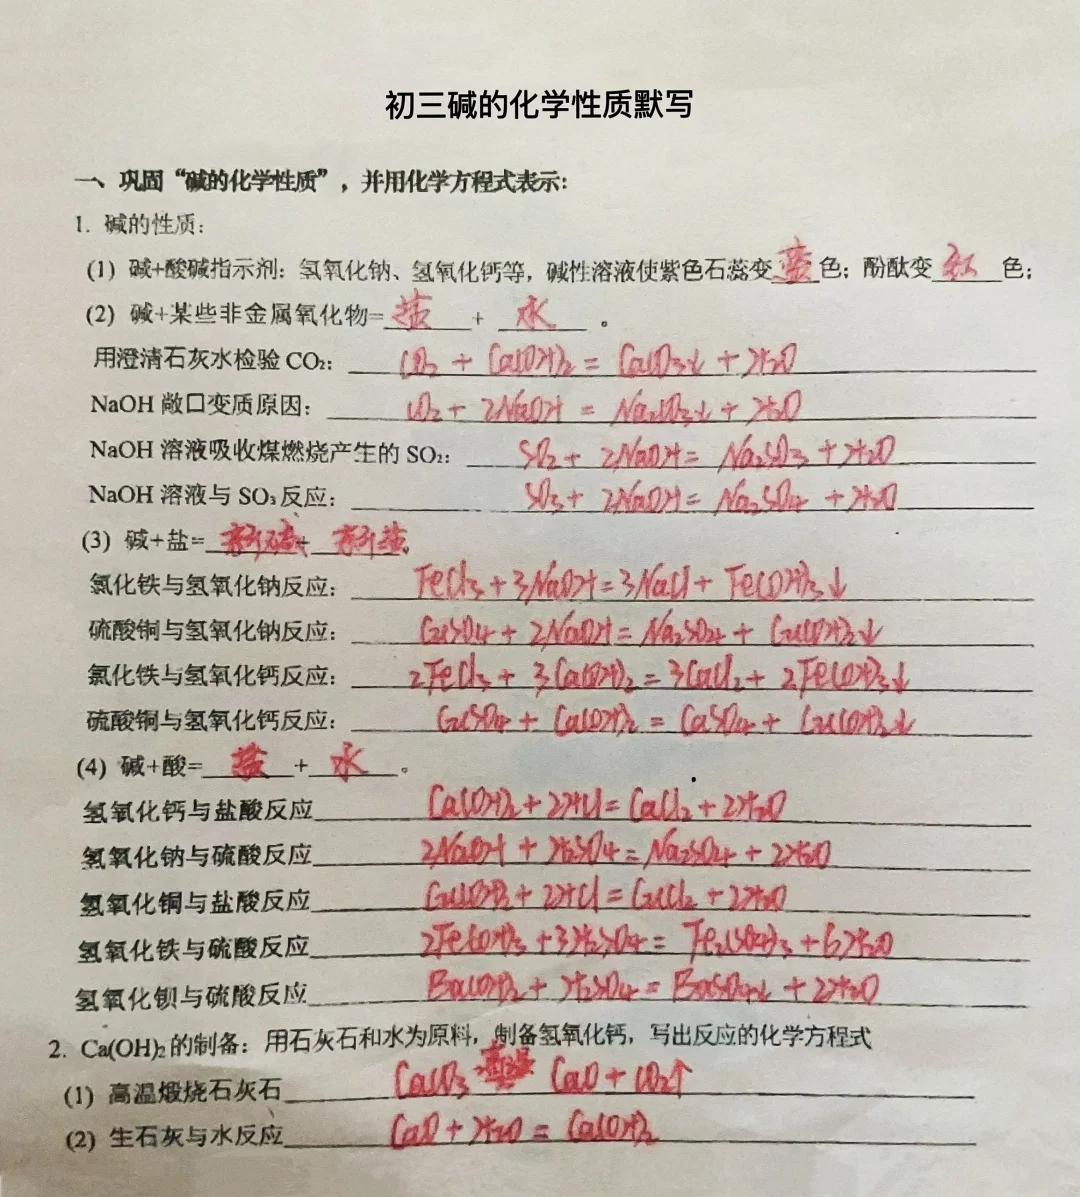 初三碱的化学性质默写
一、巩固“碱的化学性质”，并用化学方程式表示：
1. 碱的性质：
(1) 碱+酸碱指示剂：氢氧化钠、氢氧化钙等，碱性溶液使紫色石蕊变蓝色；酚酞变红色；
(2) 碱+某些非金属氧化物=盐 + 水 。
用澄清石灰水检验 CO₂：CO₂ + Ca(OH)₂ = CaCO₃↓ + H₂O
NaOH 敞口变质原因：CO₂ + 2NaOH = Na₂CO₃↓ + H₂O
NaOH 溶液吸收煤燃烧产生的 SO₂：SO₂ + 2NaOH = Na₂SO₃ + H₂O
NaOH 溶液与 SO₃反应：SO₃ + 2NaOH = Na₂SO₄ + H₂O
(3) 碱+盐=新碱+新盐
氯化铁与氢氧化钠反应：FeCl₃ + 3NaOH = 3NaCl + Fe(OH)₃↓
硫酸铜与氢氧化钠反应：CuSO₄ + 2NaOH = Na₂SO₄ + Cu(OH)₂↓
氯化铁与氢氧化钙反应：2FeCl₃ + 3Ca(OH)₂ = 3CaCl₂ + 2Fe(OH)₃↓
硫酸铜与氢氧化钙反应：CuSO₄ + Ca(OH)₂ = CaSO₄ + Cu(OH)₂↓
(4) 碱+酸=盐 + 水 。
氢氧化钙与盐酸反应 Ca(OH)₂ + 2HCl = CaCl₂ + 2H₂O
氢氧化钠与硫酸反应 2NaOH + H₂SO₄ = Na₂SO₄ + 2H₂O
氢氧化铜与盐酸反应 Cu(OH)₂ + 2HCl = CuCl₂ + 2H₂O
氢氧化铁与硫酸反应 2Fe(OH)₃ + 3H₂SO₄ = Fe₂(SO₄)₃ + 6H₂O
氢氧化钡与硫酸反应 Ba(OH)₂ + H₂SO₄ = BaSO₄↓ + 2H₂O
2. Ca(OH)₂的制备：用石灰石和水为原料，制备氢氧化钙，写出反应的化学方程式
(1) 高温煅烧石灰石 CaCO₃ 高温 CaO + CO₂↑
(2) 生石灰与水反应 CaO + H₂O = Ca(OH)₂